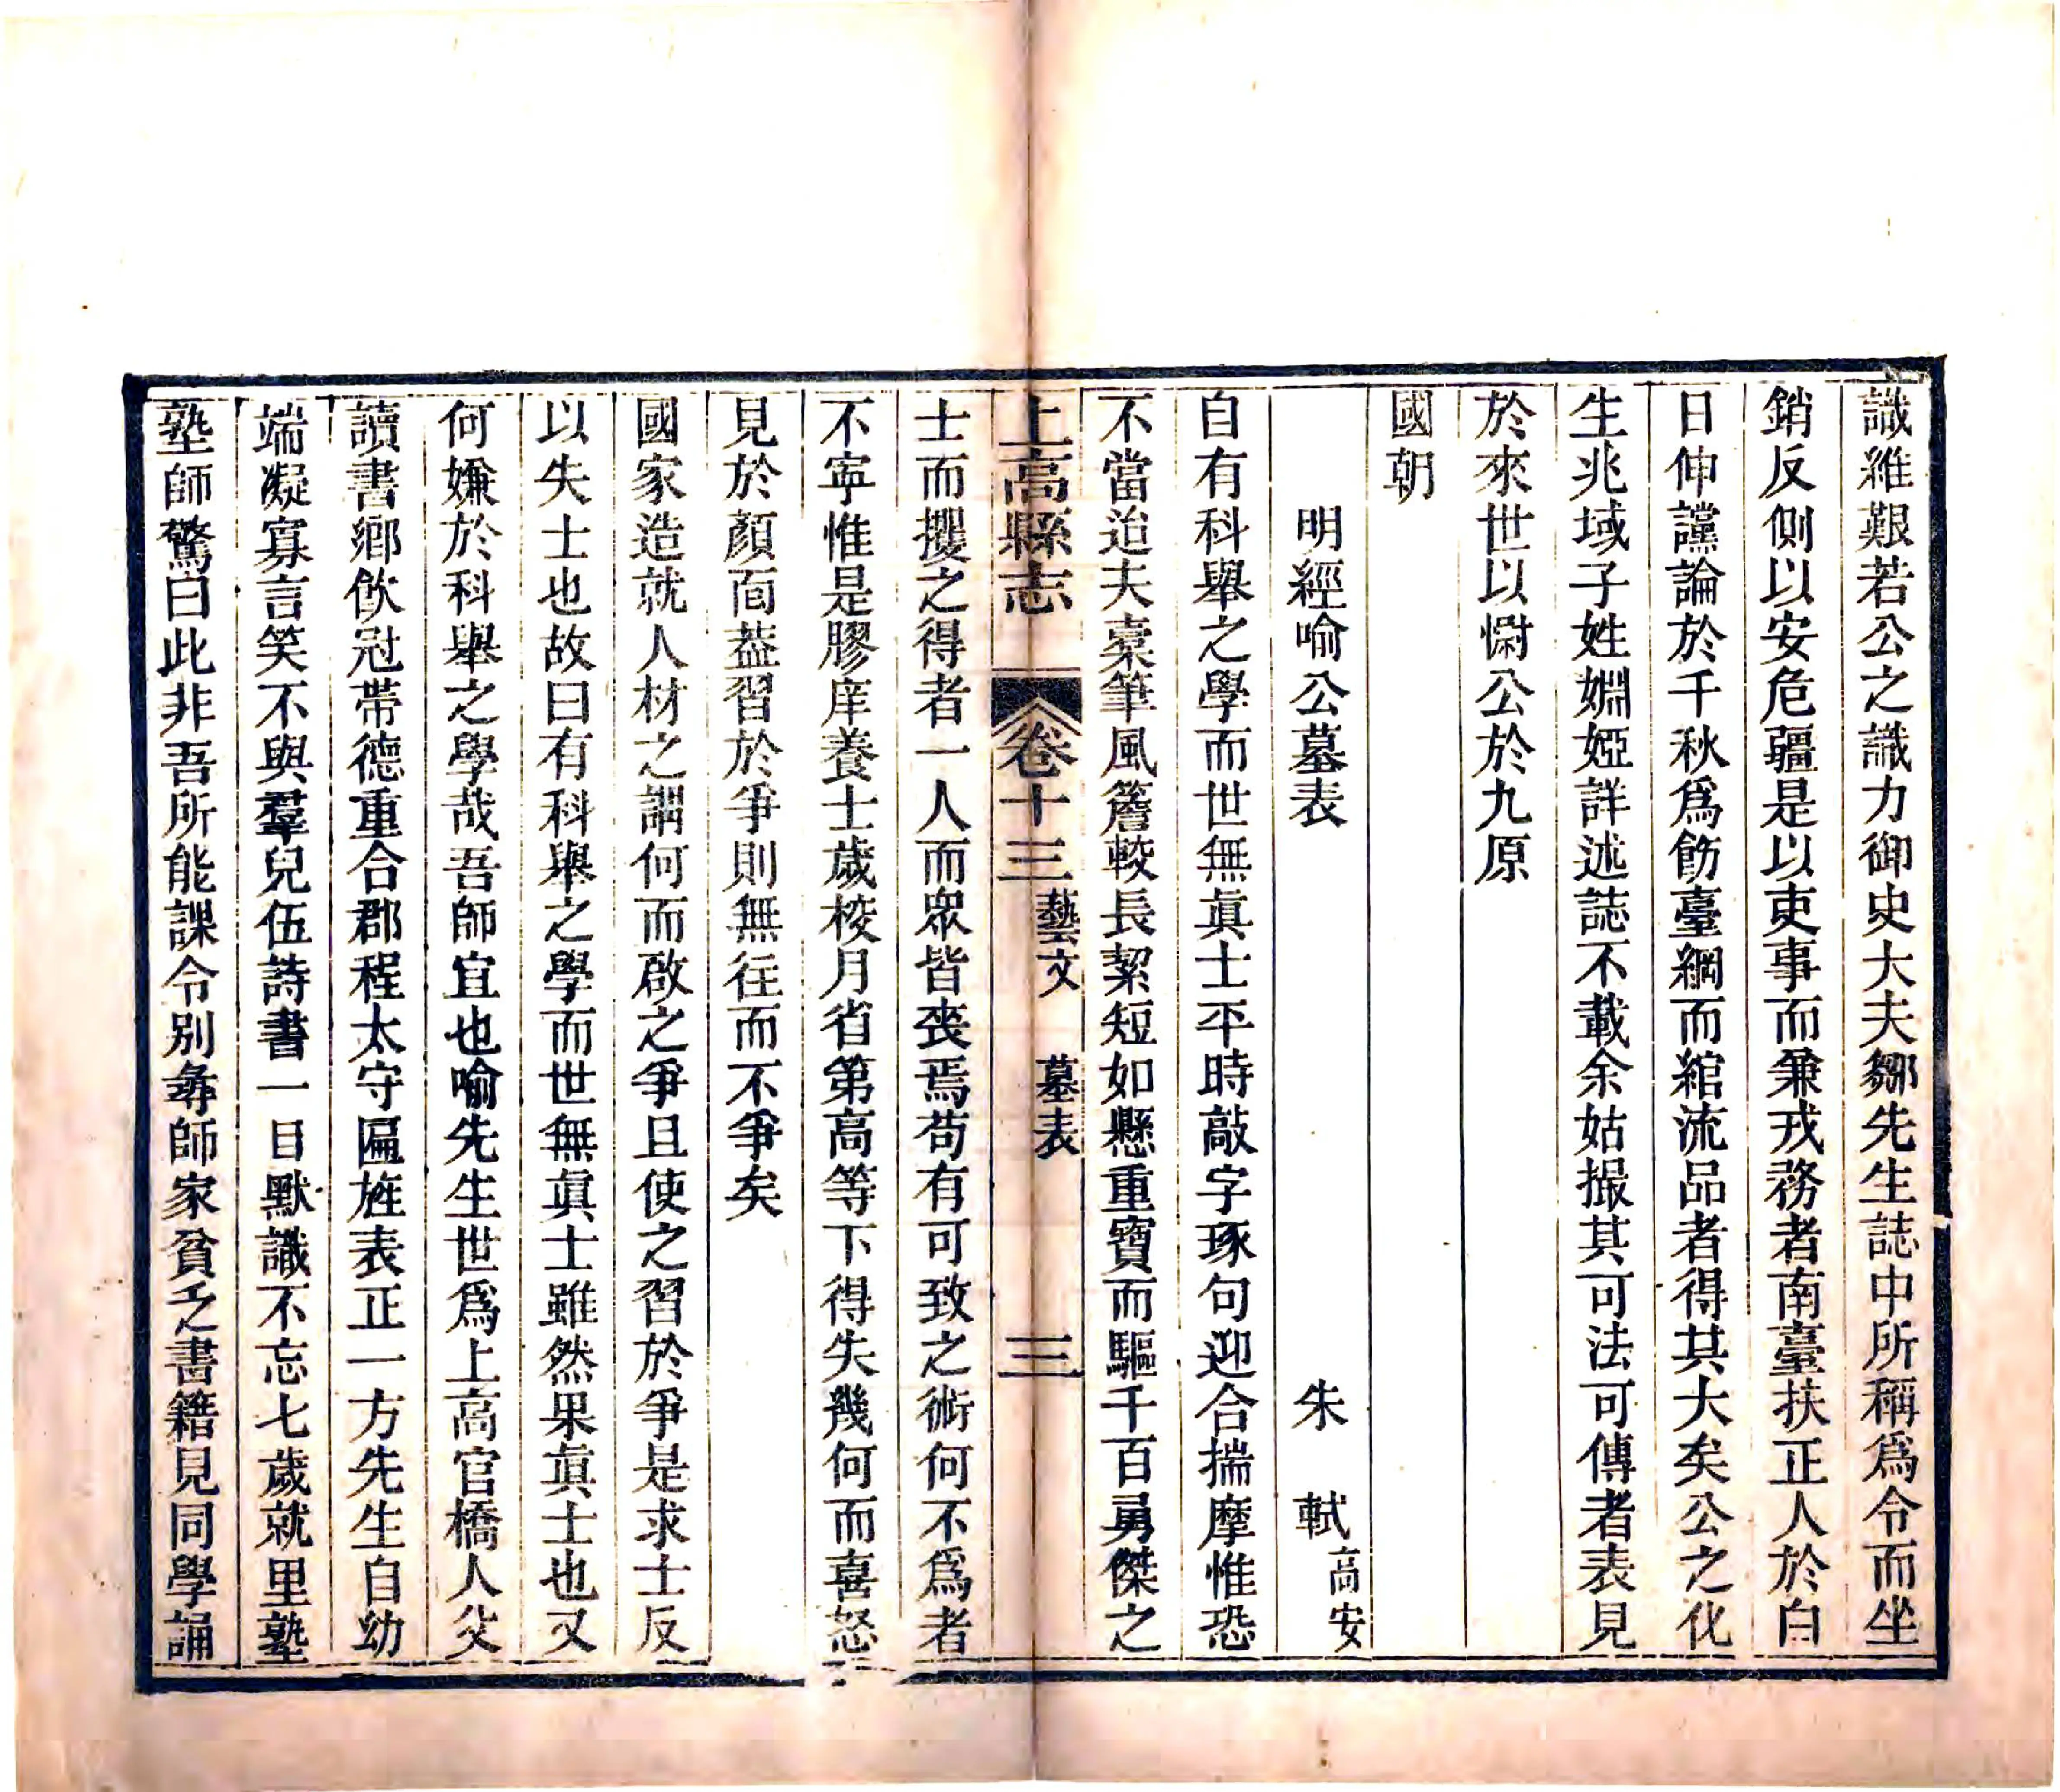 識維艱若公之識力御史大夫鄒先生誌中所稱爲令而坐
銷反側以安危疆是以吏事而兼戎務者南臺扶正人於白
日伸讜論於千秋爲飭臺綱而綰流品者得其大矣公之化
生兆域子姓婣婭詳述誌不載余姑撮其可法可傳者表見
於來世以慰公於九原
國朝
明經喻公墓表 朱軾高安
自有科舉之學而世無眞士平時敲字琢句迎合揣摩惟恐
不當迨夫槖筆風簷較長絜短如懸重寶而驅千百勇傑之
上高縣志 卷十三 藝文 墓表 三
士而攫之得者一人而眾皆喪焉苟有可致之術何不爲者
不寧惟是膠庠養士歲校月省第高等下得失幾何而喜怒
見於顏面葢習於爭則無徃而不爭矣
國家造就人材之謂何而啟之爭且使之習於爭是求士反
以失士也故曰有科舉之學而世無眞士雖然果眞士也又
何嫌於科舉之學哉吾師宜也喻先生世爲上高官橋人父
讀書鄉飲冠帶德重合郡程太守匾旌表正一方先生自幼
端凝寡言笑不與羣兒伍詩書一目默識不忘七歲就里塾
塾師驚曰此非吾所能課令別尋師家貧乏書籍見同學誦